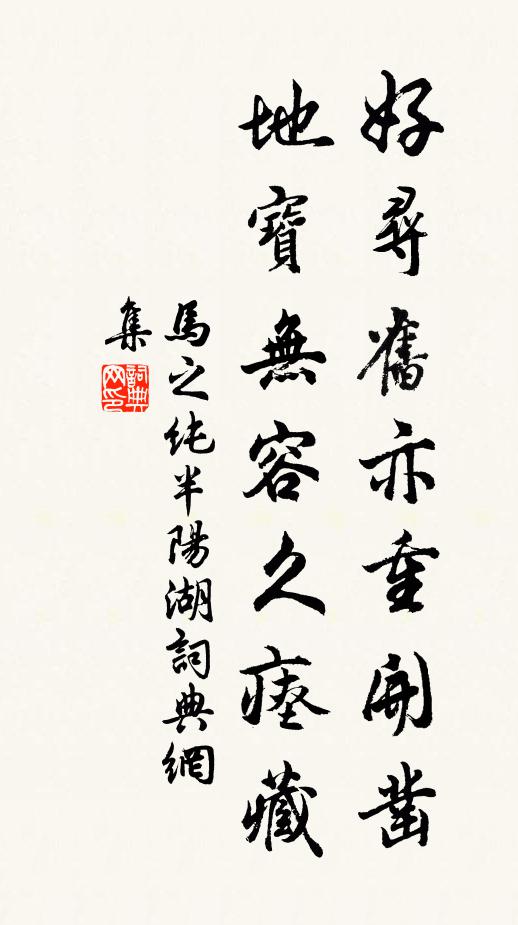 好尋舊亦重開鑿
地寶無容久瘞藏
馬之純半陽湖詞典網
集
詞典
网印